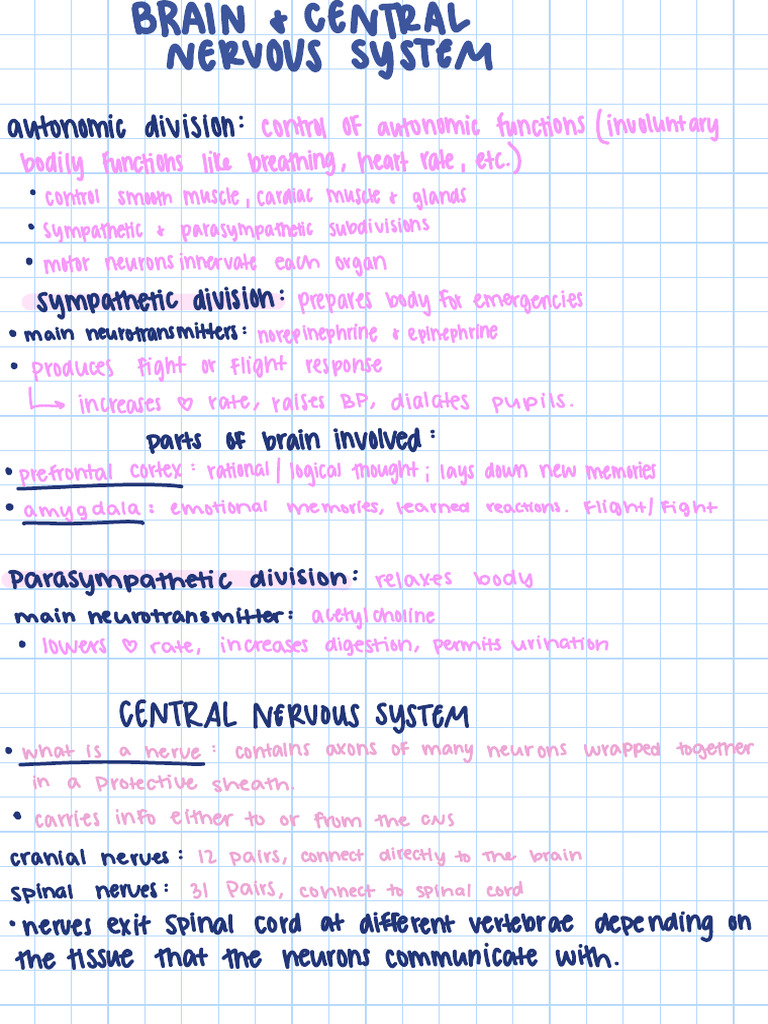 BRAIN & CENTRAL
NERVOUS SYSTEM
autonomic division: control of autonomic functions (involuntary
bodily functions like breathing, heart rate, etc.)
• control smooth muscle, cardiac muscle & glands
• sympathetic & parasympathetic subdivisions
• motor neurons innervate each organ
sympathetic division: prepares body for emergencies
• main neurotransmitters: norepinephrine & epinephrine
• produces fight or flight response
↳ increases ♡ rate, raises BP, dialates pupils.
parts of brain involved:
• prefrontal cortex: rational/logical thought; lays down new memories
• amygdala: emotional memories, learned reactions. Flight/Fight
parasympathetic division: relaxes body
main neurotransmitter: acetylcholine
• lowers ♡ rate, increases digestion, permits urination
CENTRAL NERVOUS SYSTEM
• what is a nerve: contains axons of many neurons wrapped together
in a protective sheath.
• carries info either to or from the CNS
cranial nerves: 12 pairs, connect directly to the brain
spinal nerves: 31 pairs, connect to spinal cord
• nerves exit spinal cord at different vertebrae depending on
the tissue that the neurons communicate with.